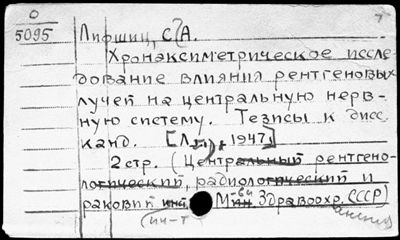 О
5095
Лифшиц, С. А.
Хронаксиметрическое иссле-
дование влияния рентгеновых
лучей на центральную нерв-
ную систему. Тезисы к дисс.
канд. [Л., 1947]
2 стр. (Центральный рентгено-
логический, радиологический и
раковый инст. М-ви Здравоохр. СССР)
(ин-т